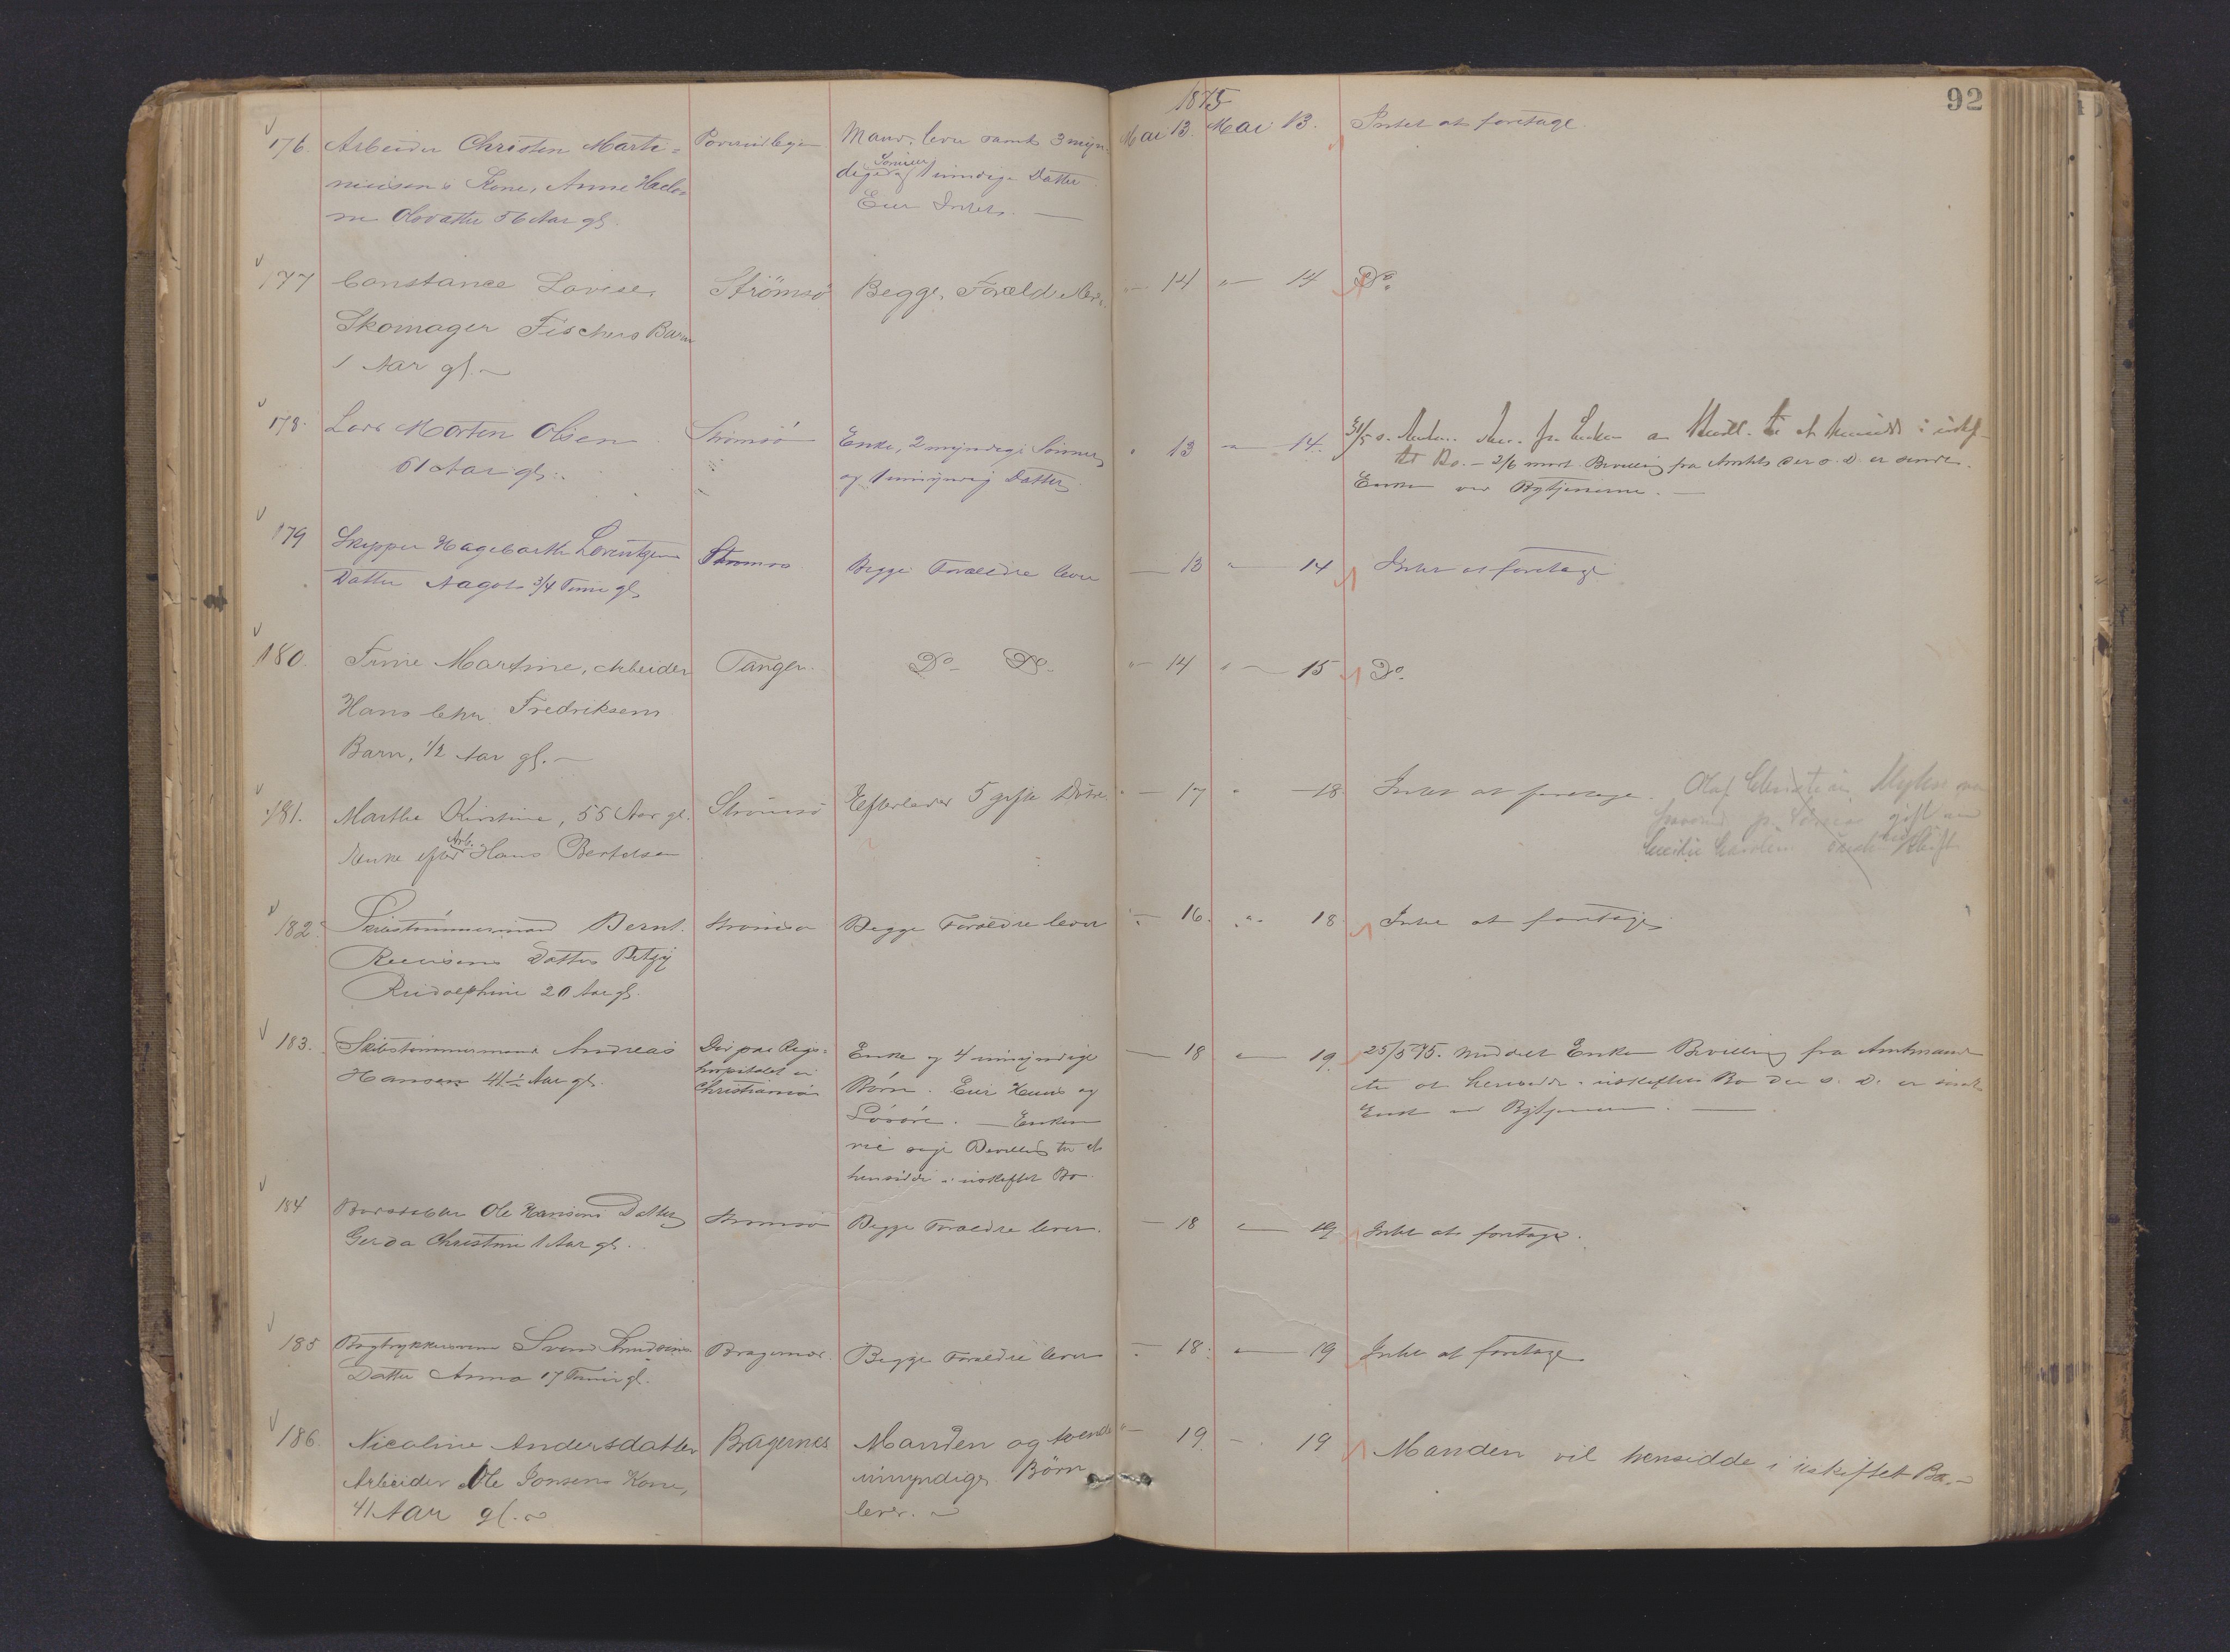 1875
92
176. Arbeider Christen Marti=
niusens Kone, Anne
Olsdatter 56 Aar gl.
Mand lever samt 3 myn-
dige Sønner og 1 umyndig Datter
Eier Intet. —
Mai 13. Mai 13. Intet at foretage.
177 Constance Lovise,
Skomager Fischers Barn
1 Aar gl. ~
Strömsö
Begge Forældre lever.
" 14 " — 14 Do.
178. Lars Morten Olsen
61 Aar gl.
Strömsö
Enke, 2 myndige Sönner
og 1 umyndig Datter
" 13 — 14.
31/5
Bo. — 2/6 modt. Bevilling fra Amtet der s. D. er sendt
Enken ved Bytjenerne. —
179 Skipper Hagbarth Lorentzens
Datter Aagot 3/4 Time gl.
Strömsö
Begge Forældre lever
— 13 " 14 Intet at foretage
180. Trine Martine, Arbeider
Hans Chr. Fredriksens
Barn, 1/2 Aar gl. ~
Tangen.
Do. Do.
" 14 " — 15 Do.
181. Marthe Kirstine, 55 Aar gl.
Enke efter Arb. Hans Bertelsen
Strömsö
Efterlader 5 gifte Döttre.
" — 17 " — 18. Intet at foretage.
Olaf Christian
gift
182. Skibstömmermand Bernt
Datter Betzy
Rudolphine 20 Aar gl.
Strömsö
Begge Forældre lever
— 16. " 18 Intet at foretage
183. Skibstømmermand Andreas
Hansen 41 1/2 Aar gl.
Död paa Rigs=
hospitalet i
Christiania
Enke og 4 umyndige
Börn. Eier Huus og
Lösöre. — Enken
vil søge Bevilling til at
hensidde i uskiftet Bo.
— 18 — 19. 25/5 75. Meddelt Enken Bevilling fra Amtmanden
til at hensidde i uskiftet Bo der s. D. er sendt
Enken ved Bytjeneren. —
184 Ole Hansens Datter
Gerda Christine 1 Aar gl.
Strömsö
Begge Forældre lever.
— 18 — 19 Intet at foretage.
185 Bogtrykkersvend Svend
Datter Anna 17 Timer gl.
Bragernæs.
Begge Forældre lever
— 18. — 19 Intet at foretage
186. Nicoline Andersdatter
Arbeider Ole Jonsens Kone,
41 Aar gl. ~
Bragernes
Manden og tvende
umyndige Börn
lever. ~
" — 19. — 19 Manden vil hensidde i uskiftet Bo. ~